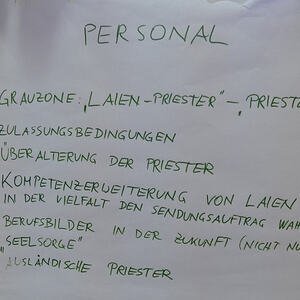 PERSONAL
GRAUZONE: "LAIEN-PRIESTER" - "PRIESTE
ZULASSUNGSBEDINGUNGEN
ÜBERALTERUNG DER PRIESTER
KOMPETENZERWEITERUNG VON LAIEN
IN DER VIELFALT DEN SENDUNGSAUFTRAG WAH
BERUFSBILDER IN DER ZUKUNFT (NICHT NU
"SEELSORGE"
AUSLÄNDISCHE PRIESTER